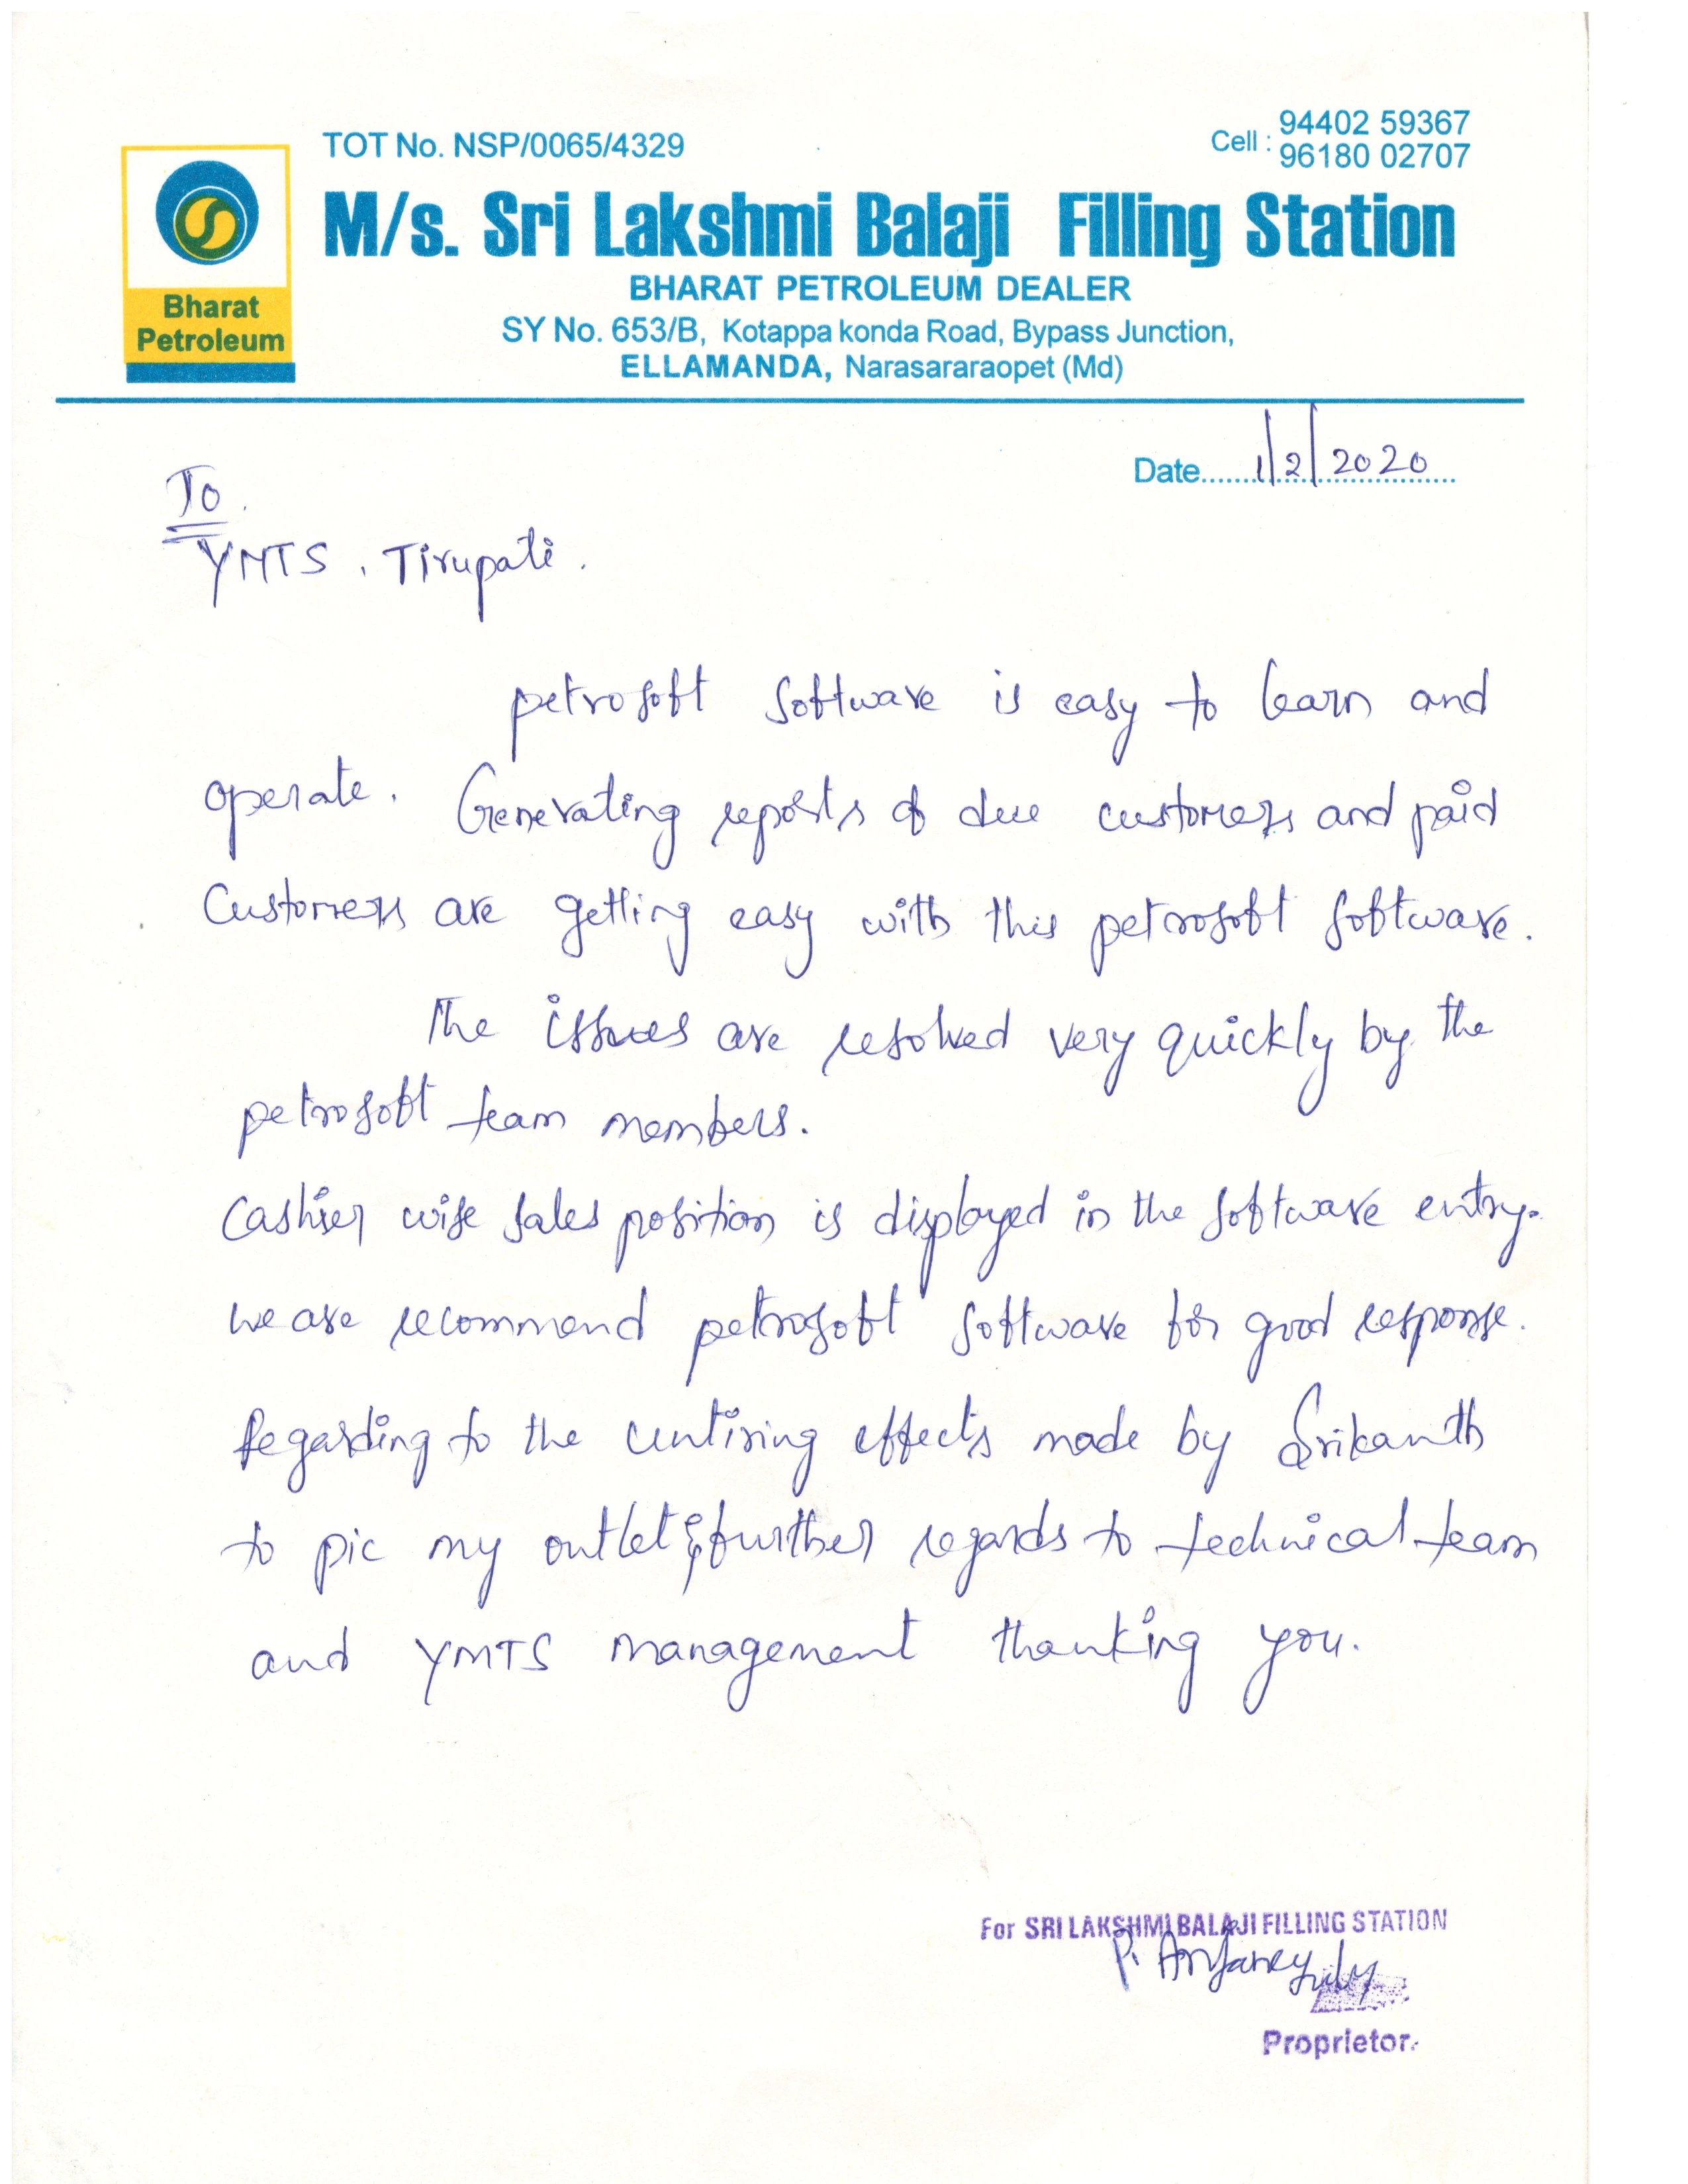 TOT No. NSP/0065/4329
Cell : 94402 59367
96180 02707
M/s. Sri Lakshmi Balaji Filling Station
Bharat
Petroleum
BHARAT PETROLEUM DEALER
SY No. 653/B, Kotappa konda Road, Bypass Junction,
ELLAMANDA, Narasararaopet (Md)
Date.......1/2/2020
To.
YMTS, Tirupati.
petrosoft software is easy to learn and
operate. Generating reports of due customers and paid
Customers are getting easy with this petrosoft software.
The issues are resolved very quickly by the
petrosoft team members.
Cashier wise sales position is displayed in the software entry.
we are recommend petrosoft software for good response.
Regarding to the untiring effects made by Srikanth
to pic my outlet & further regards to technical team
and YMTS management thanking you.
For SRI LAKSHMI BALAJI FILLING STATION
P. Anjaneyulu
Proprietor.